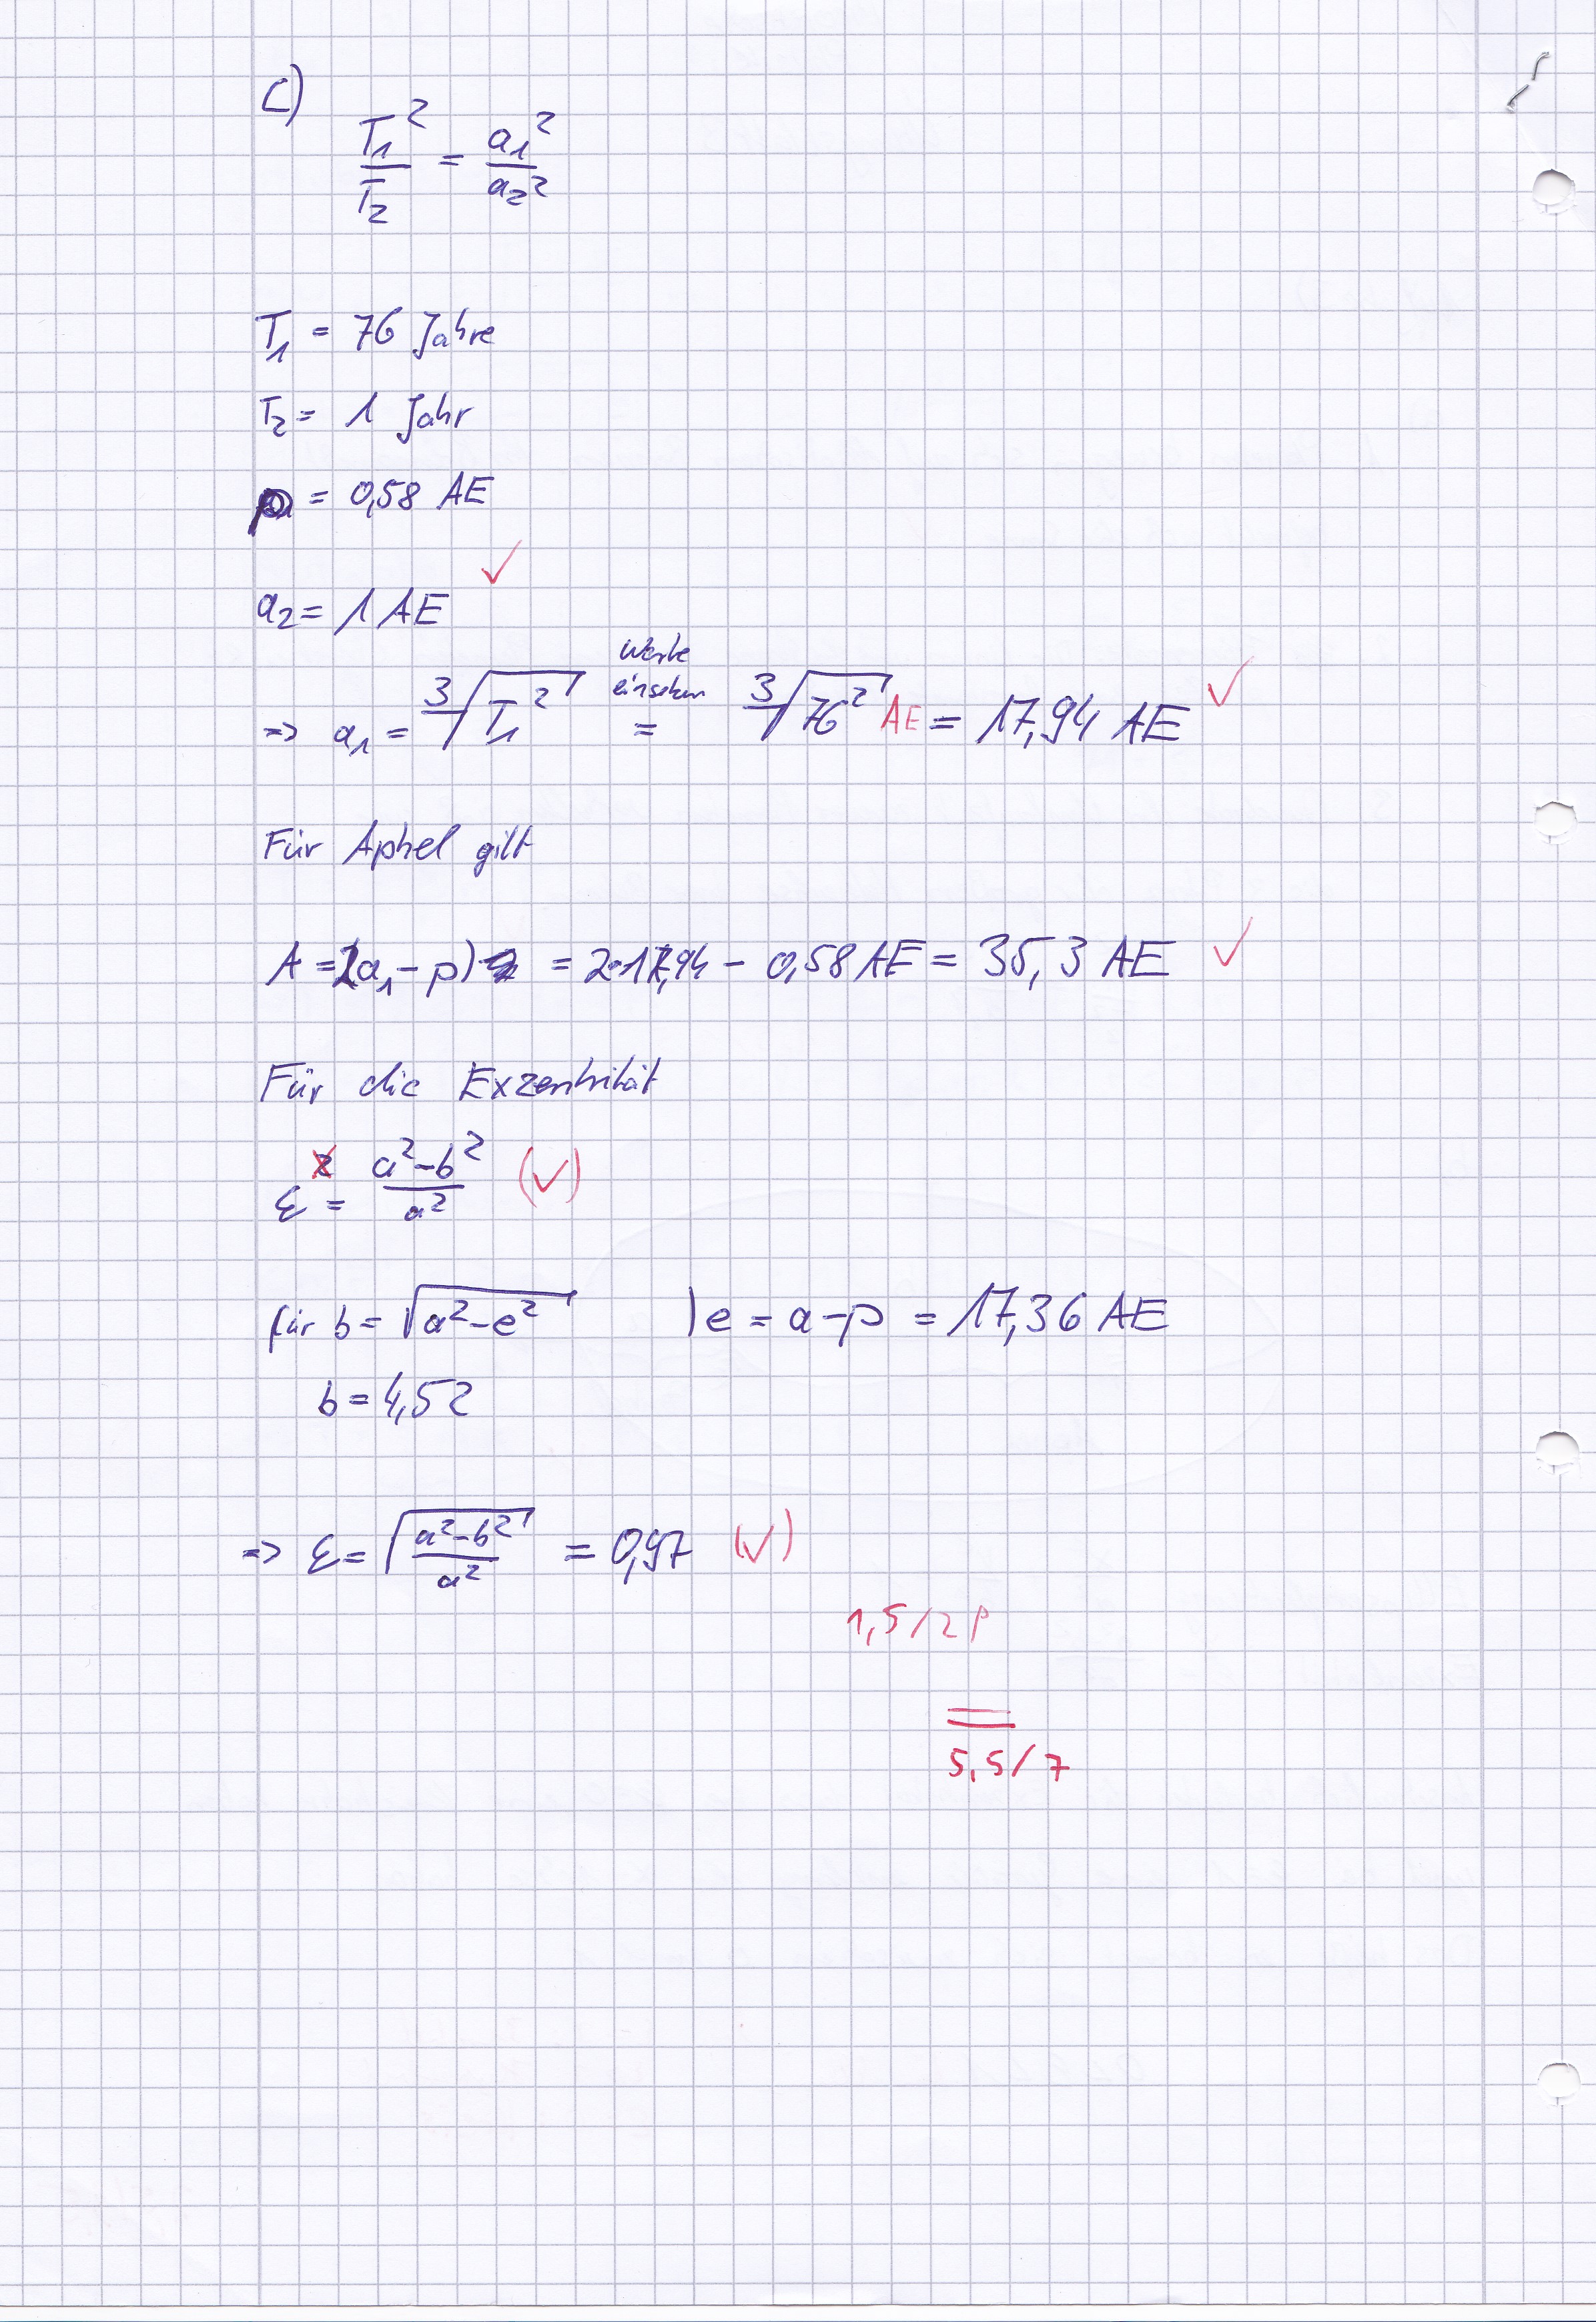 c)
T₁² / T₂ = a₁² / a₂²
T₁ = 76 Jahre
T₂ = 1 Jahr
p = 0,58 AE
✓
a₂ = 1 AE
⇒ a₁ = ³√T₁² Werte einsetzen = ³√76² AE = 17,94 AE ✓
Für Aphel gilt
A = 2(a₁ - p) = 2·17,94 - 0,58 AE = 35,3 AE ✓
Für die Exzentrität
ε² = a²-b² / a² (✓)
für b = √a²-e² | e = a-p = 17,36 AE
b = 4,52
⇒ ε = √a²-b² / a² = 0,97 (✓)
1,5/2 P
5,5/7